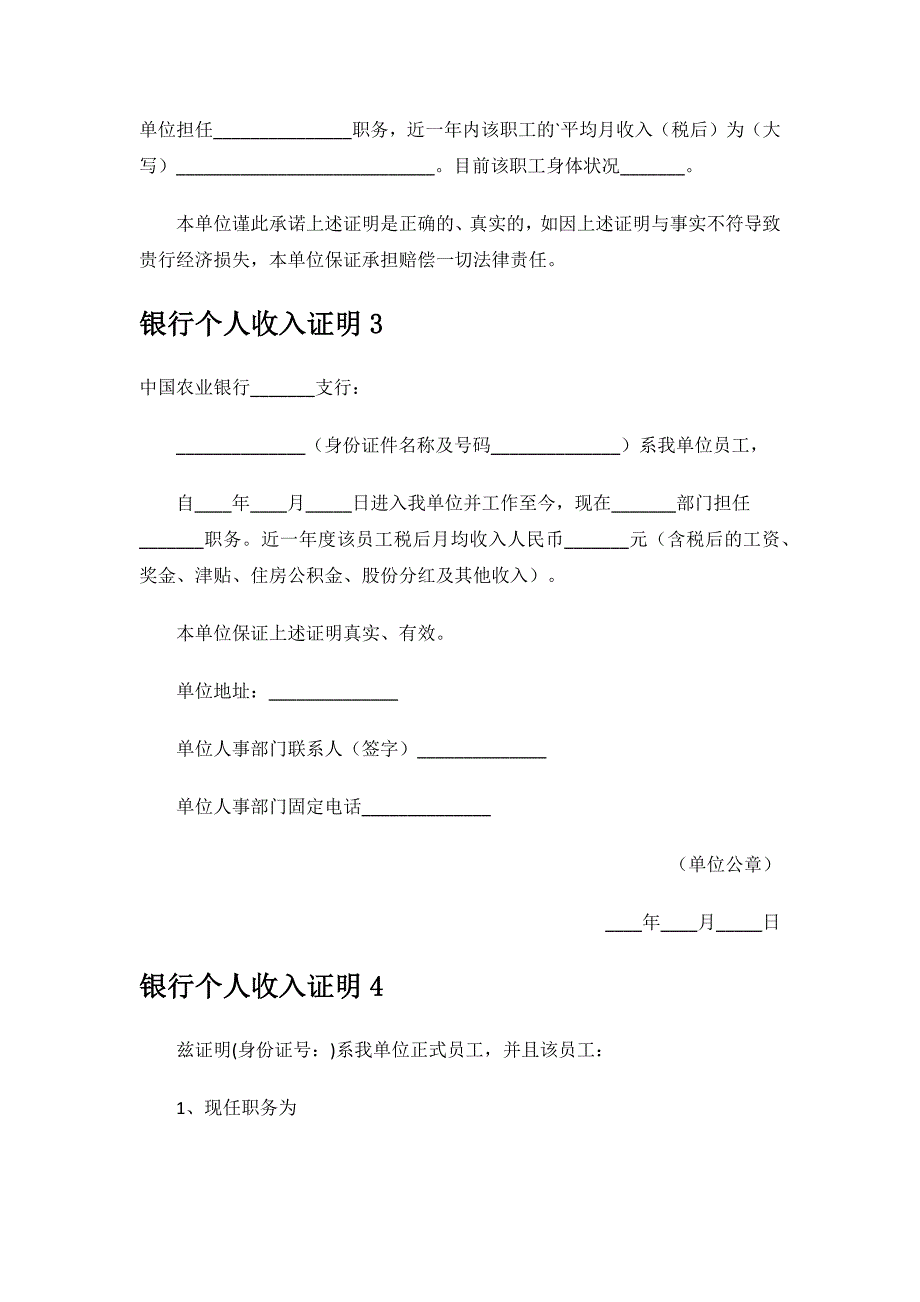 单位担任_______________职务，近一年内该职工的`平均月收入（税后）为（大
写）____________________________。目前该职工身体状况_______。
本单位谨此承诺上述证明是正确的、真实的，如因上述证明与事实不符导致
贵行经济损失，本单位保证承担赔偿一切法律责任。
银行个人收入证明 3
中国农业银行_______支行：
______________（身份证件名称及号码______________）系我单位员工，
自____年____月_____日进入我单位并工作至今，现在_______部门担任
_______职务。近一年度该员工税后月均收入人民币_______元（含税后的工资、
奖金、津贴、住房公积金、股份分红及其他收入）。
本单位保证上述证明真实、有效。
单位地址：______________
单位人事部门联系人（签字）______________
单位人事部门固定电话______________
（单位公章）
____年____月_____日
银行个人收入证明 4
兹证明(身份证号：)系我单位正式员工，并且该员工：
1、现任职务为